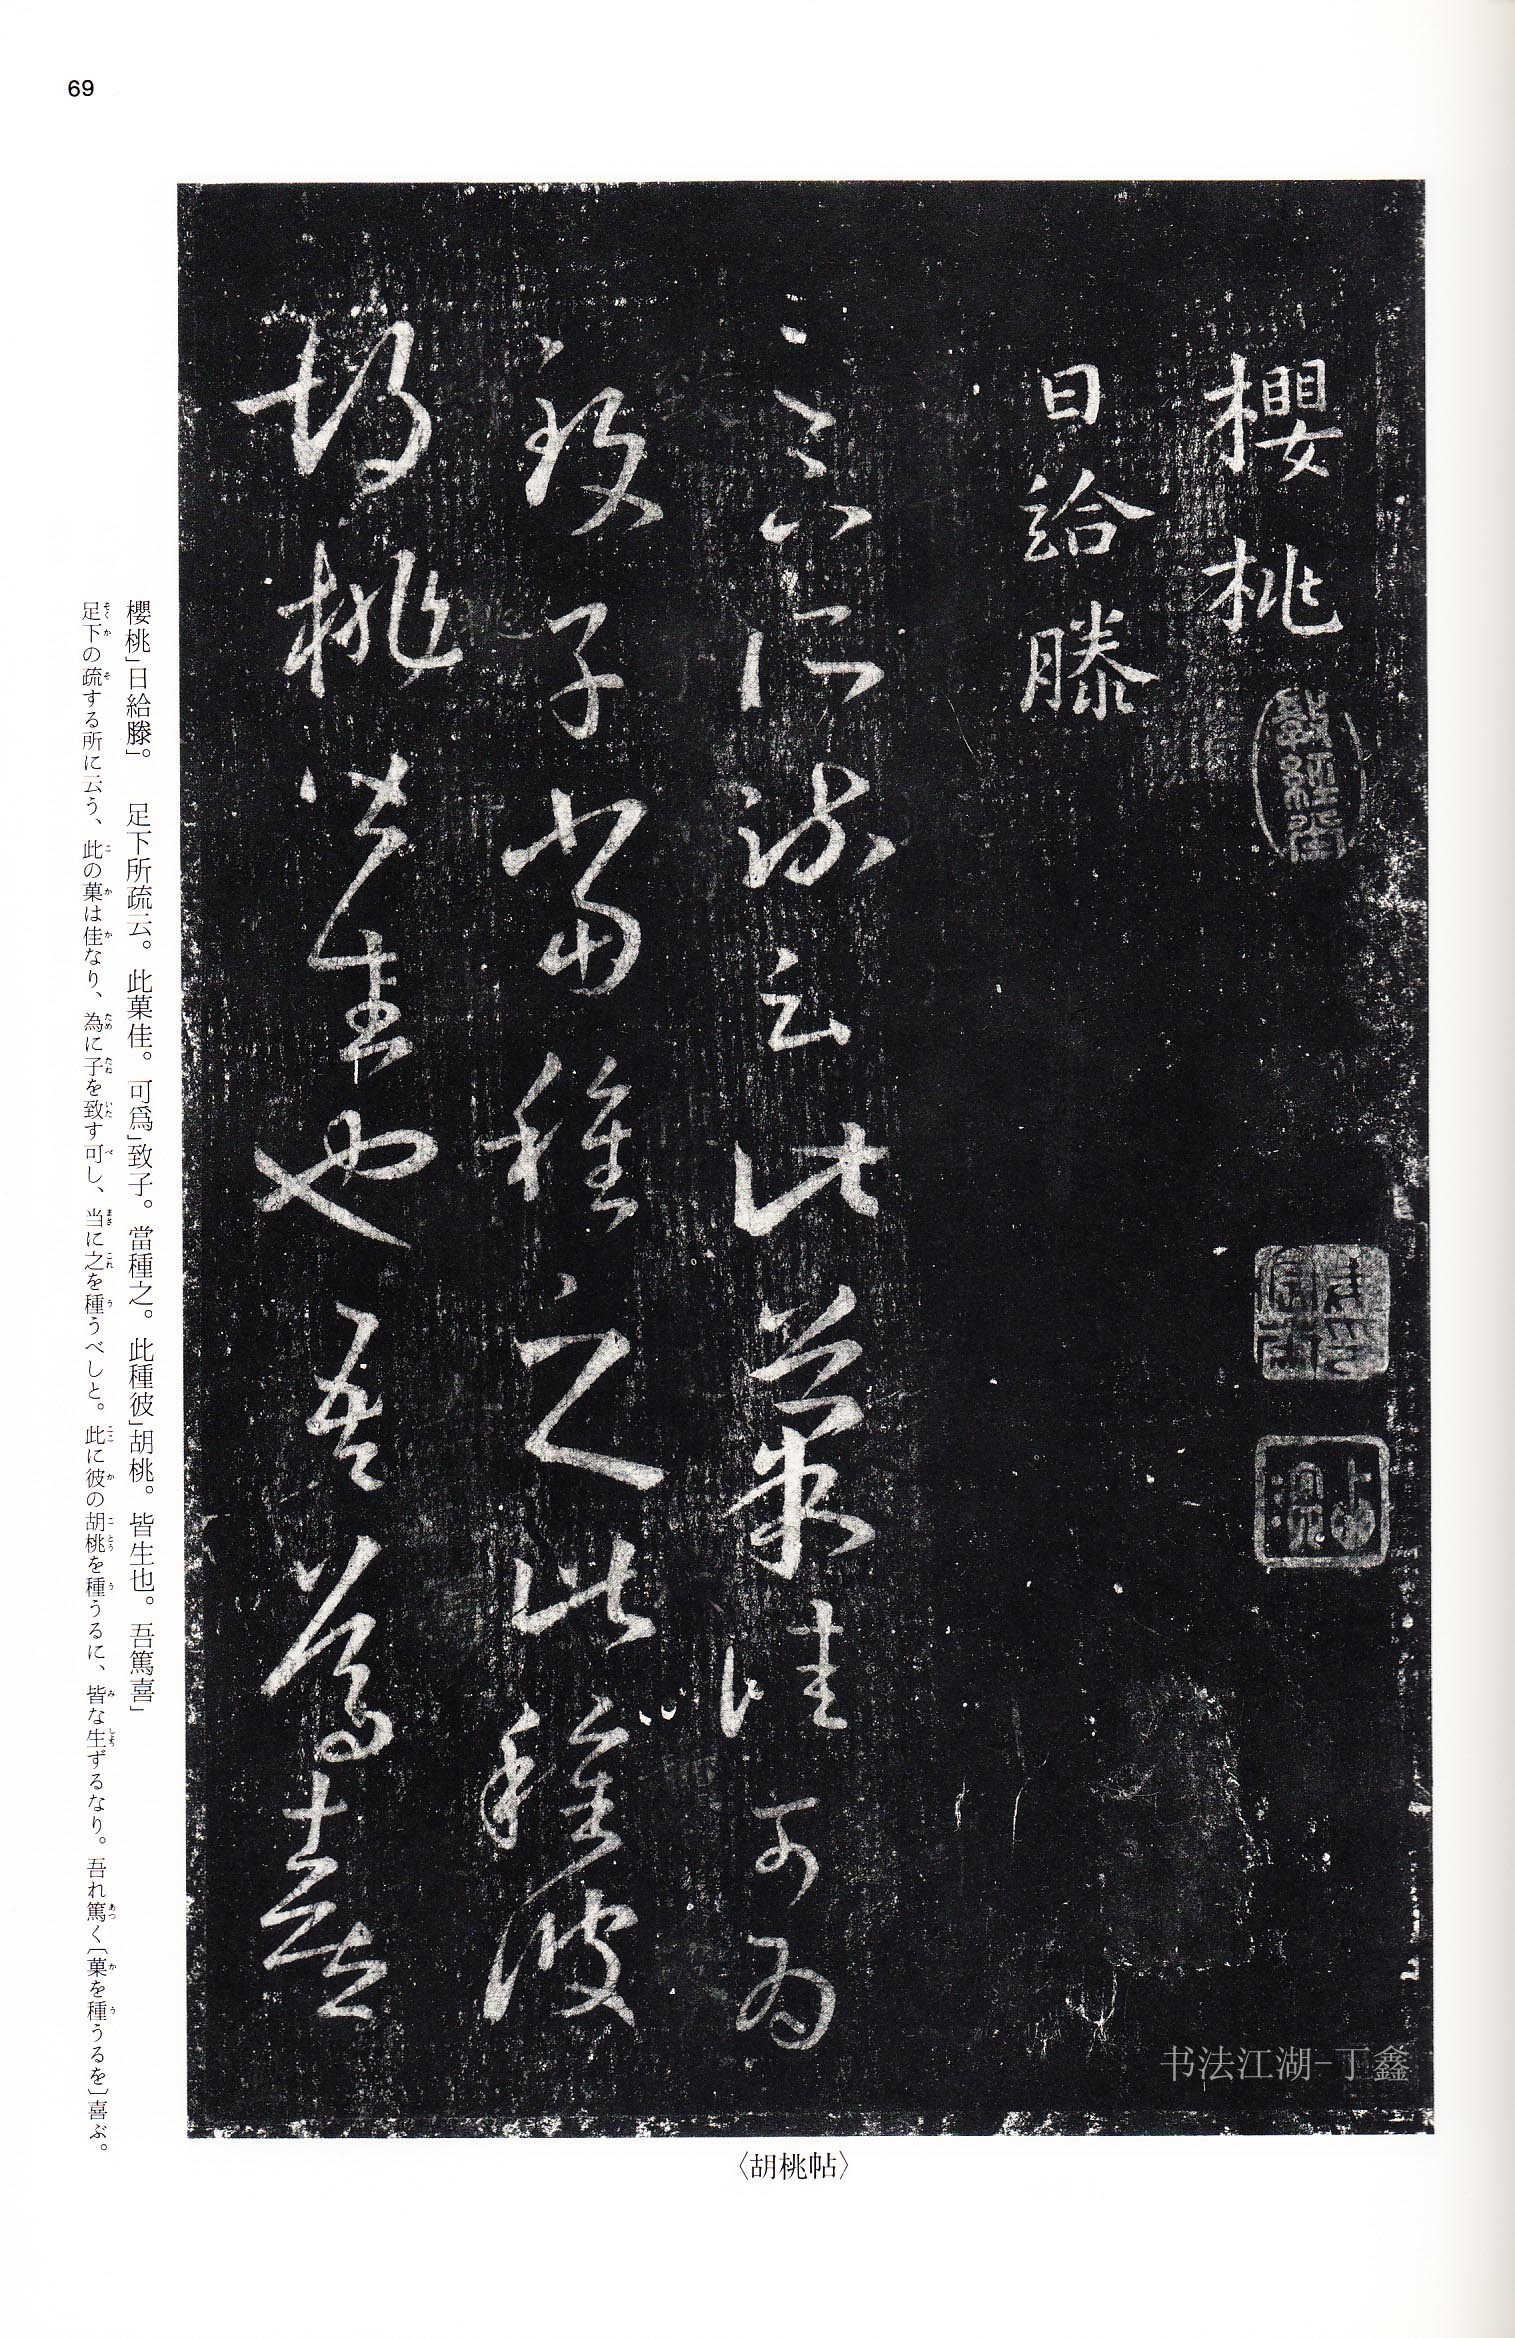 69
櫻桃
日給滕
足下所疏云此菓佳可為
致子當種之此種彼
胡桃皆生也吾篤喜
〈胡桃帖〉
櫻桃」日給滕」。　足下所疏云。此菓佳。可爲」致子。當種之。此種彼」胡桃。皆生也。吾篤喜」
足下の疏する所に云う、此の菓は佳なり、為に子を致す可し、当に之を種うべしと。此に彼の胡桃を種うるに、皆な生ずるなり。吾れ篤く〔菓を種うるを〕喜ぶ。
书法江湖-丁鑫